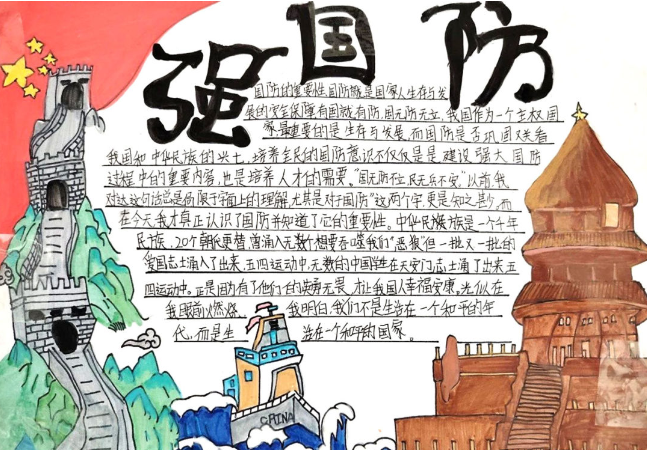 强国防
国防的重要性国防就是国家人生存与发
展的安全保障。有国就有防,国无防无立,我国作为一个主权国
家,最重要的是生存与发展,而国防是否巩固关看
我国和中华民族的兴亡,培养全民的国防意识不仅仅是是建设强大国防
过程中的重要内容,也是培养人才的需要。“国无防不立,民无兵不安。”以前我
对这句话总是局限于字面上的理解,尤其是对于国防”这两个字,更是知之甚少。而
在今天我才真正认识了国防并知道了它的重要性。中华民族族是一个千年
民族,20个朝代更替,曾涌入无数个想要吞噬我们”恶狼”但一批又一批的
爱国志士涌入了出来,五四运动中,无数的中国学生在天安门志士涌了出来,五
四运动中。正是因为有了他们的英勇无畏,才让我国人幸福安康。光似在
我眼前火燃烧。我明白,我们不是生活在一个和平的年
代,而是生活在一个和平的国家。
CHINA